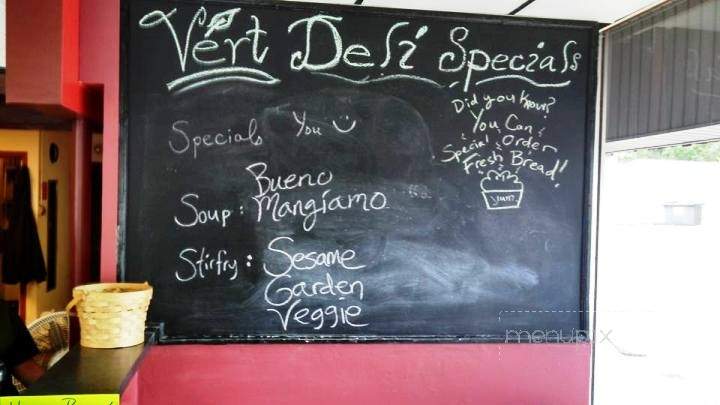 Vért Deli Specials
Specials You
Did you Know?
You Can
Special Order
Fresh Bread!
yum!
Bueno
Soup: Mangiamo
Stirfry: Sesame
Garden
Veggie
menupix